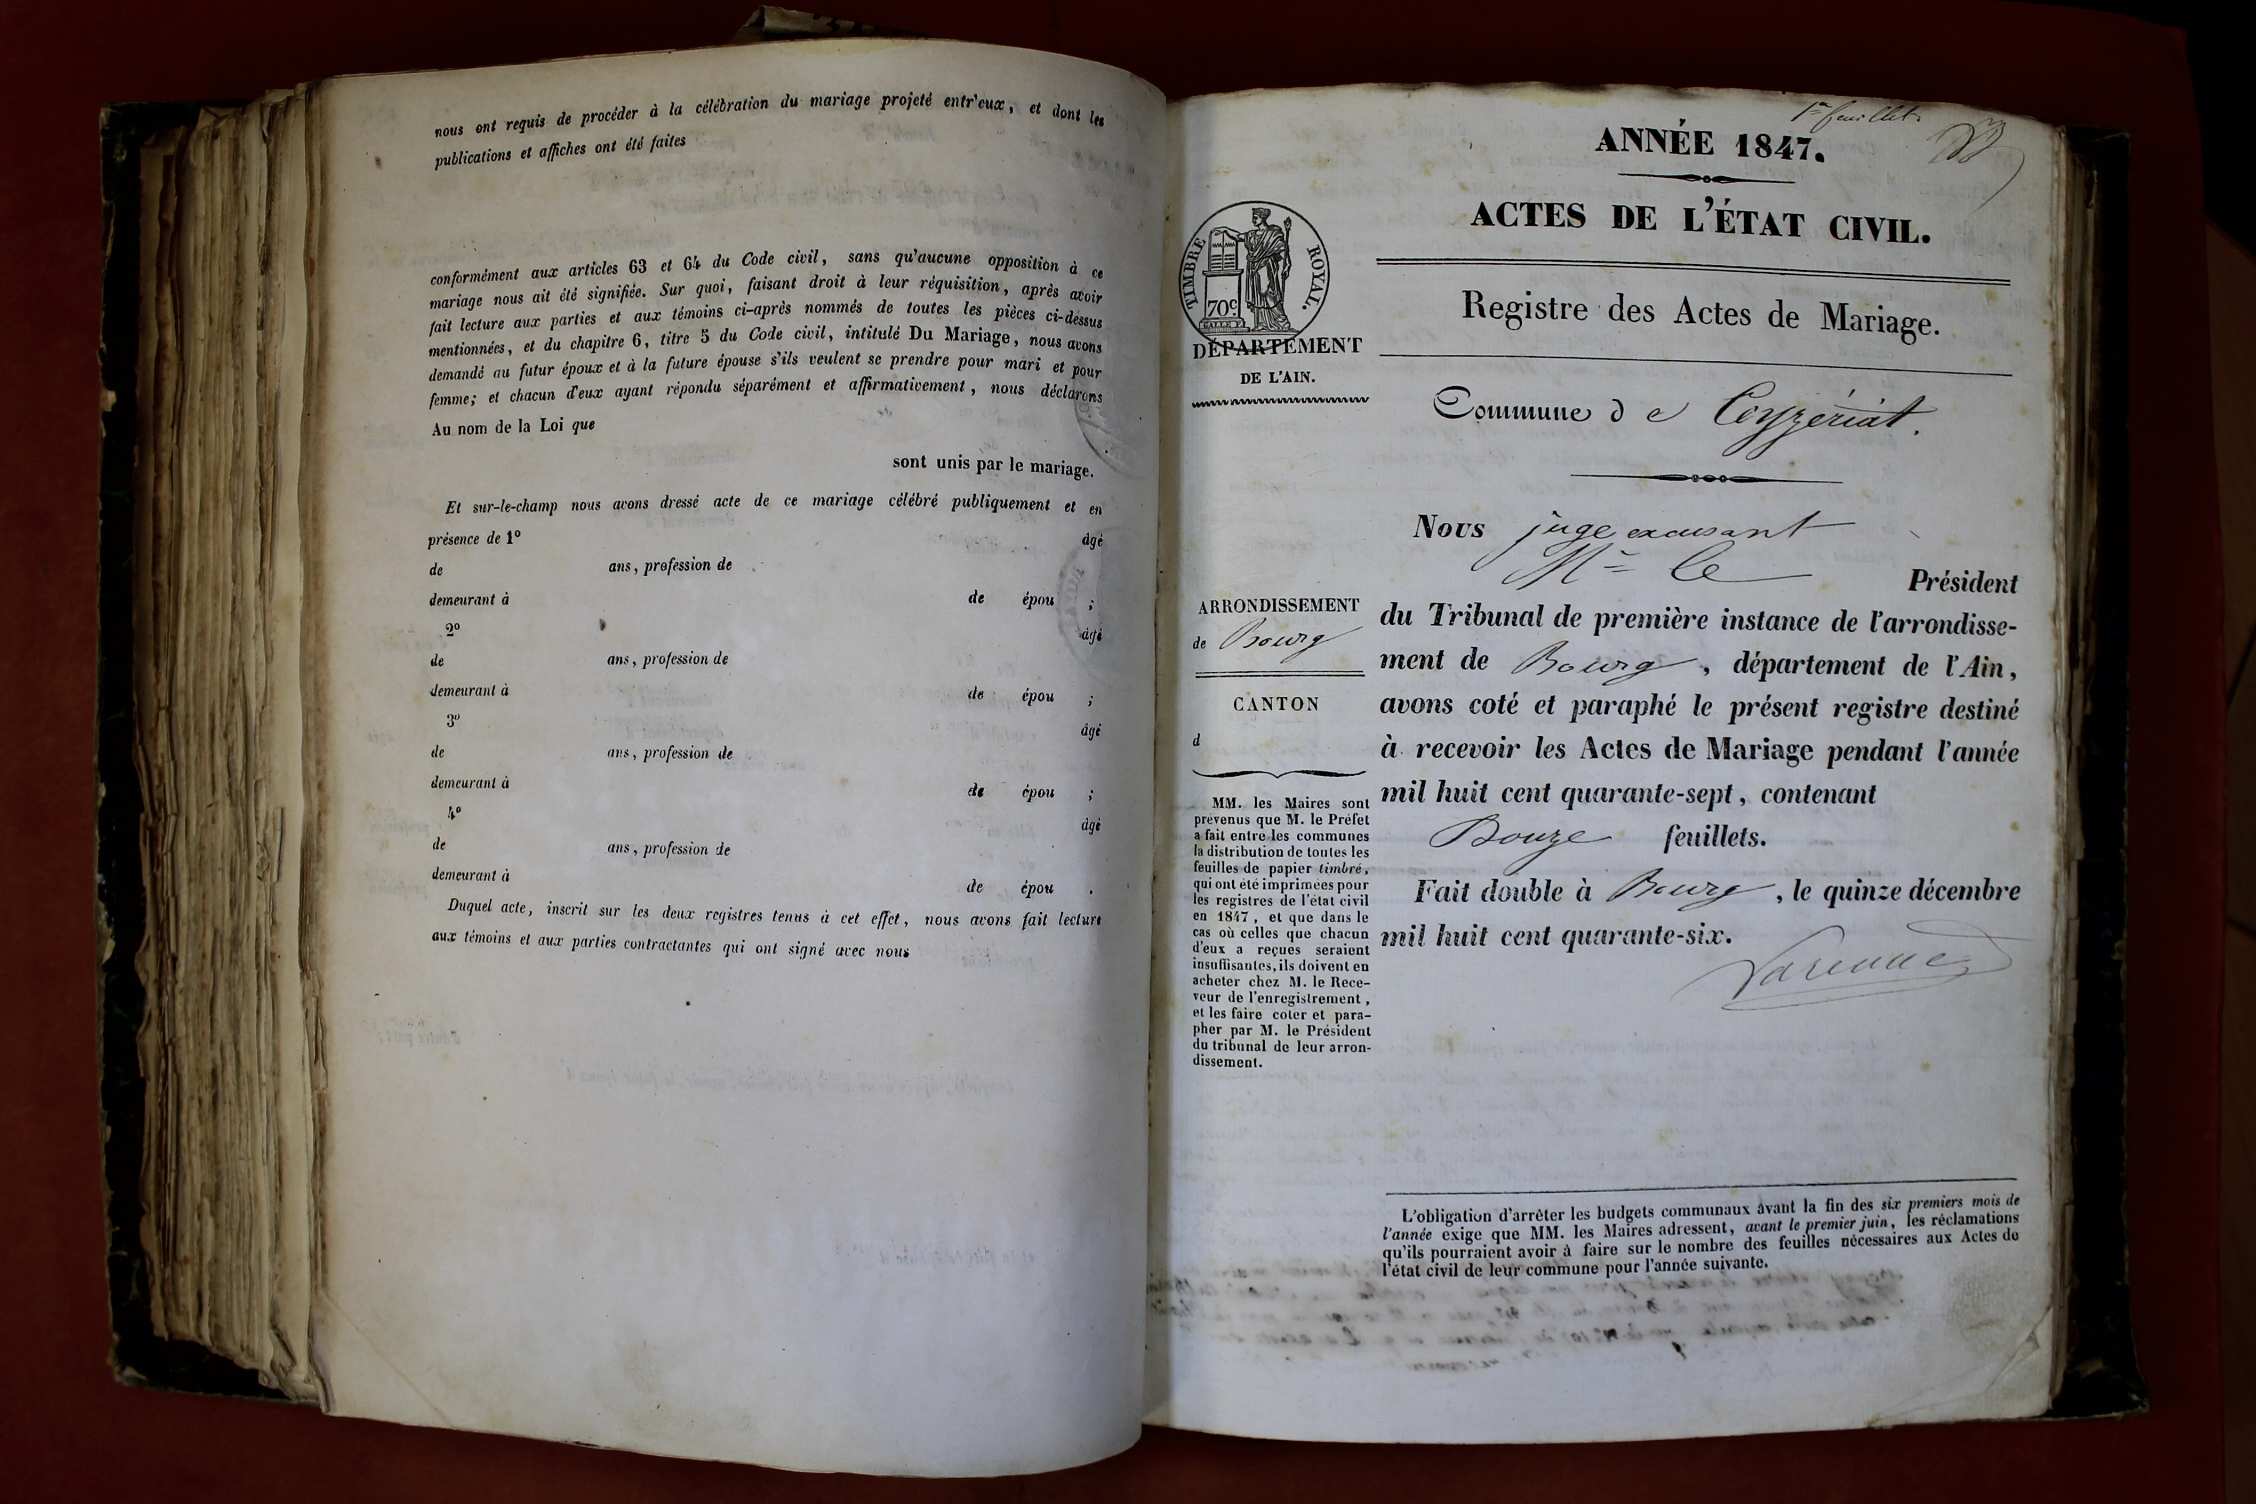 nous ont requis de procéder à la célébration du mariage projeté entr'eux, et dont les
publications et affiches ont été faites
conformément aux articles 63 et 64 du Code civil, sans qu'aucune opposition à ce
mariage nous ait été signifiée. Sur quoi, faisant droit à leur réquisition, après avoir
fait lecture aux parties et aux témoins ci-après nommés de toutes les pièces ci-dessus
mentionnées, et du chapitre 6, titre 5 du Code civil, intitulé Du Mariage, nous avons
demandé au futur époux et à la future épouse s'ils veulent se prendre pour mari et pour
femme; et chacun d'eux ayant répondu séparément et affirmativement, nous déclarons
Au nom de la Loi que
sont unis par le mariage.
Et sur-le-champ nous avons dressé acte de ce mariage célébré publiquement et en
présence de 1º âgé
de ans, profession de
demeurant à de épou ;
2º âgé
de ans, profession de
demeurant à de épou ;
3º âgé
de ans, profession de
demeurant à de épou ;
4º âgé
de ans, profession de
demeurant à de épou .
Duquel acte, inscrit sur les deux registres tenus à cet effet, nous avons fait lecture
aux témoins et aux parties contractantes qui ont signé avec nous
1er feuillet.
ANNÉE 1847.
ACTES DE L'ÉTAT CIVIL.
TIMBRE ROYAL.
70c
Registre des Actes de Mariage.
DÉPARTEMENT
DE L'AIN.
Commune de Ceyzériat.
Nous juge excusant
Mr le Président
du Tribunal de première instance de l'arrondisse-
ment de Bourg, département de l'Ain,
avons coté et paraphé le présent registre destiné
à recevoir les Actes de Mariage pendant l'année
mil huit cent quarante-sept, contenant
Douze feuillets.
Fait double à Bourg, le quinze décembre
mil huit cent quarante-six.
ARRONDISSEMENT
de Bourg
CANTON
d
MM. les Maires sont
prévenus que M. le Préfet
a fait entre les communes
la distribution de toutes les
feuilles de papier timbré,
qui ont été imprimées pour
les registres de l'état civil
en 1847, et que dans le
cas où celles que chacun
d'eux a reçues seraient
insuffisantes, ils doivent en
acheter chez M. le Rece-
veur de l'enregistrement,
et les faire coter et para-
pher par M. le Président
du tribunal de leur arron-
dissement.
L'obligation d'arrêter les budgets communaux avant la fin des six premiers mois de
l'année exige que MM. les Maires adressent, avant le premier juin, les réclamations
qu'ils pourraient avoir à faire sur le nombre des feuilles nécessaires aux Actes de
l'état civil de leur commune pour l'année suivante.